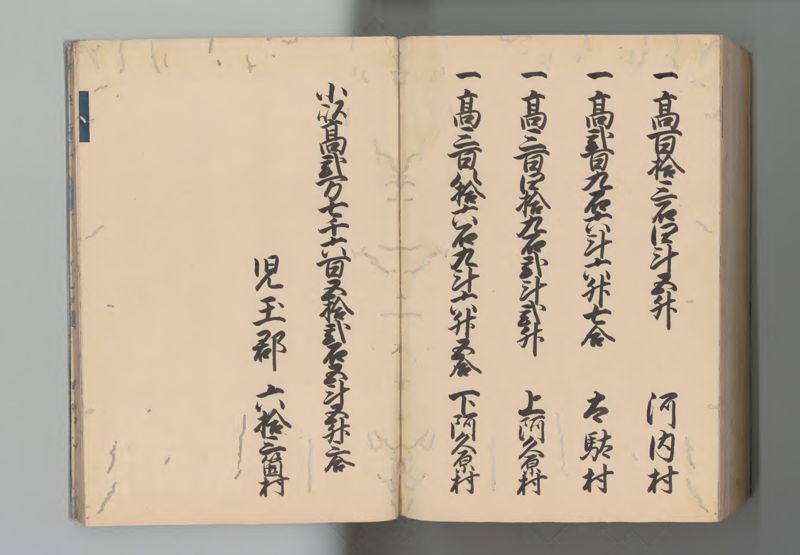 一高百拾三石四斗五升 河内村
一高弐百九石六斗六升七合 太駄村
一高三百四拾九石弐斗弐升 上阿久原村
一高三百八拾六石九斗六升五合 下阿久原村
小以高弐万七千六百五拾弐石五斗五升二合
児玉郡 六拾三箇村